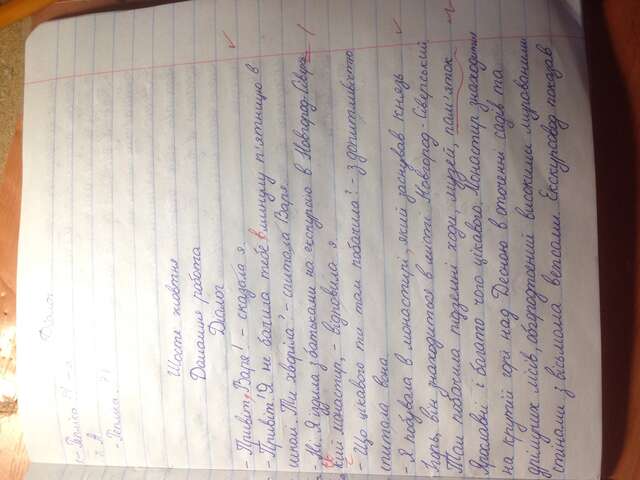 Шосте жовтня
Домашня робота
Діалог
- Привіт, Варя! - сказала я.
- Привіт! Я не бачила тебе в минулу п'ятницю в
школі. Ти хворіла? - спитала Варя.
- Ні. Я їздила з батьками на екскурсію в Новгород-Сіверс
кий монастир, - відповіла я.
- Що цікавого ти там побачила? - з допитливістю
спитала вона.
- Я побувала в монастирі, який заснував князь
Ігорь, він знаходится в місті Новгород-Сіверський.
Там побачила підземні ходи, музей, пам'яток
Ярославни і багато чого цікавого. Монастир знаходится
на крутій горі над Десною в оточенні садів та
дрімучих лісів, обгороджений високими мурованими
стінами з вісьмома вежами. Екскурсовод показав